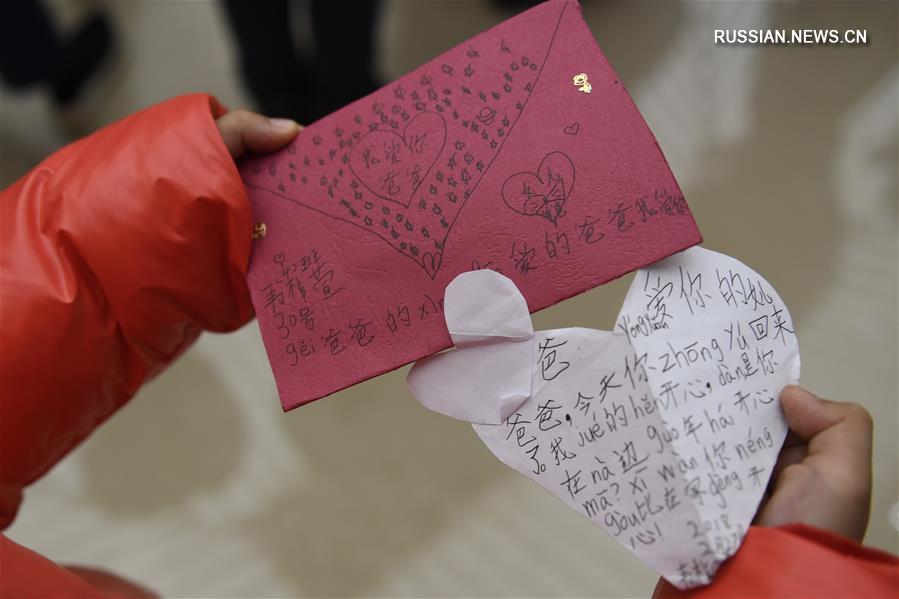 RUSSIAN.NEWS.CN
我爱你
爸爸
30号
gěi爸爸的xìn
爱的爸爸我爱你
爱你的
yǒngyuǎn
爸
爸爸,今天你zhōng yú回来
了我jué的hěn开心,dàn是你
在nà边guò年hái开心
mā?xī wàn你néng
gòu比在家gèng开
心!
2018